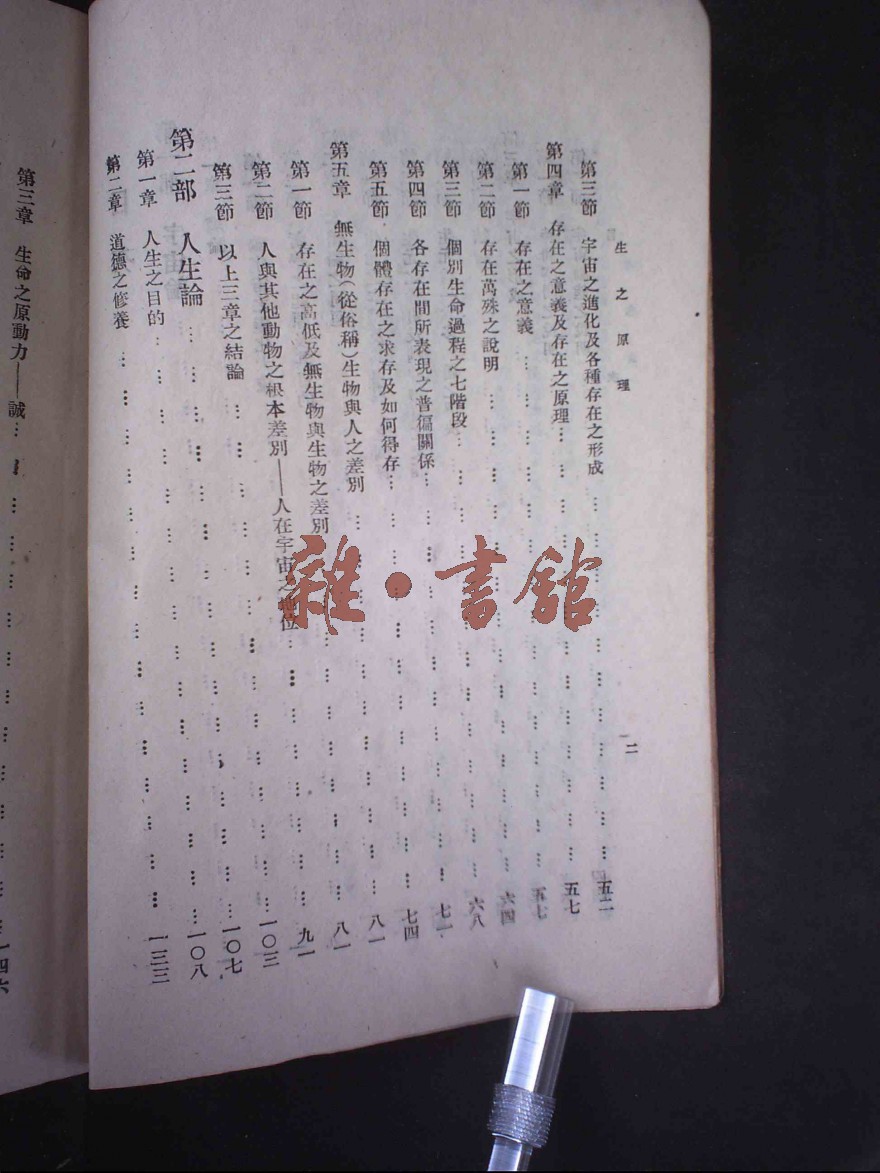 生之原理 二
第三節 宇宙之進化及各種存在之形成……五二
第四章 存在之意義及存在之原理……五七
第一節 存在之意義……五七
第二節 存在萬殊之說明……六四
第三節 個別生命過程之七階段……六八
第四節 各存在間所表現之普徧關係……七一
第五節 個體存在之求存及如何得存……七四
第五章 無生物(從俗稱)生物與人之差別……八一
第一節 存在之高低及無生物與生物之差別……八一
第二節 人與其他動物之根本差別——人在宇宙之地位……九一
第三節 以上三章之結論……一〇三
第二部 人生論……一〇七
第一章 人生之目的……一〇八
第二章 道德之修養……一三三
第三章 生命之原動力——誠……一四六
雜·書館